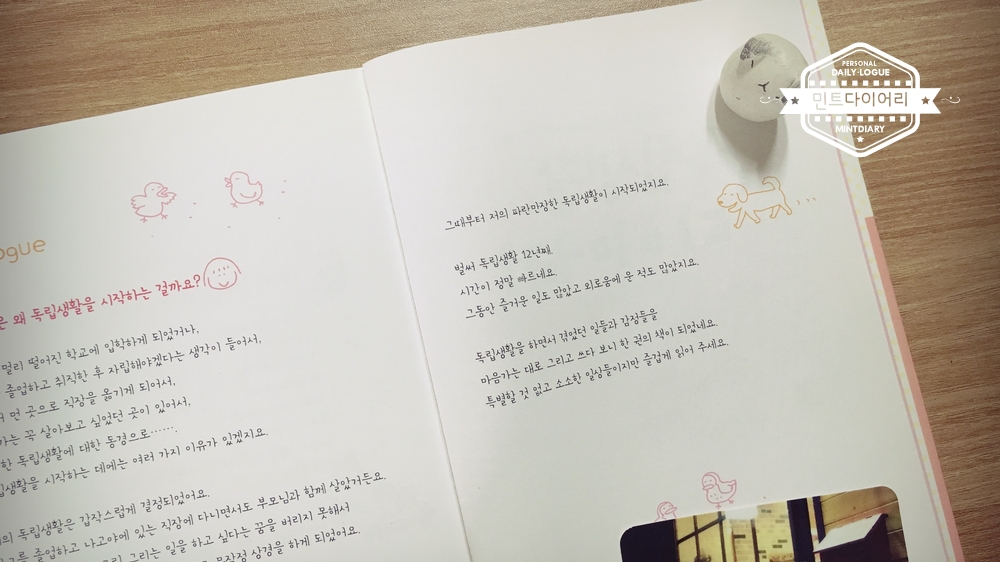 ogue
은 왜 독립생활을 시작하는 걸까요?
멀리 떨어진 학교에 입학하게 되었거나,
졸업하고 취직한 후 자립해야겠다는 생각이 들어서,
먼 곳으로 직장을 옮기게 되어서,
꼭 살아보고 싶었던 곳이 있어서,
한 독립생활에 대한 동경으로……
립생활을 시작하는 데에는 여러 가지 이유가 있겠지요.
의 독립생활은 갑작스럽게 결정되었어요.
를 졸업하고 나고야에 있는 직장에 다니면서도 부모님과 함께 살았거든요.
그리는 일을 하고 싶다는 꿈을 버리지 못해서
무작정 상경을 하게 되었어요.
그때부터 저의 파란만장한 독립생활이 시작되었지요.
벌써 독립생활 12년째.
시간이 정말 빠르네요.
그동안 즐거운 일도 많았고 외로움에 운 적도 많았지요.
독립생활을 하면서 겪었던 일들과 감정들을
마음가는 대로 그리고 쓰다 보니 한 권의 책이 되었네요.
특별할 것 없고 소소한 일상들이지만 즐겁게 읽어 주세요.
PERSONAL
DAILY·LOGUE
민트다이어리
MINTDIARY